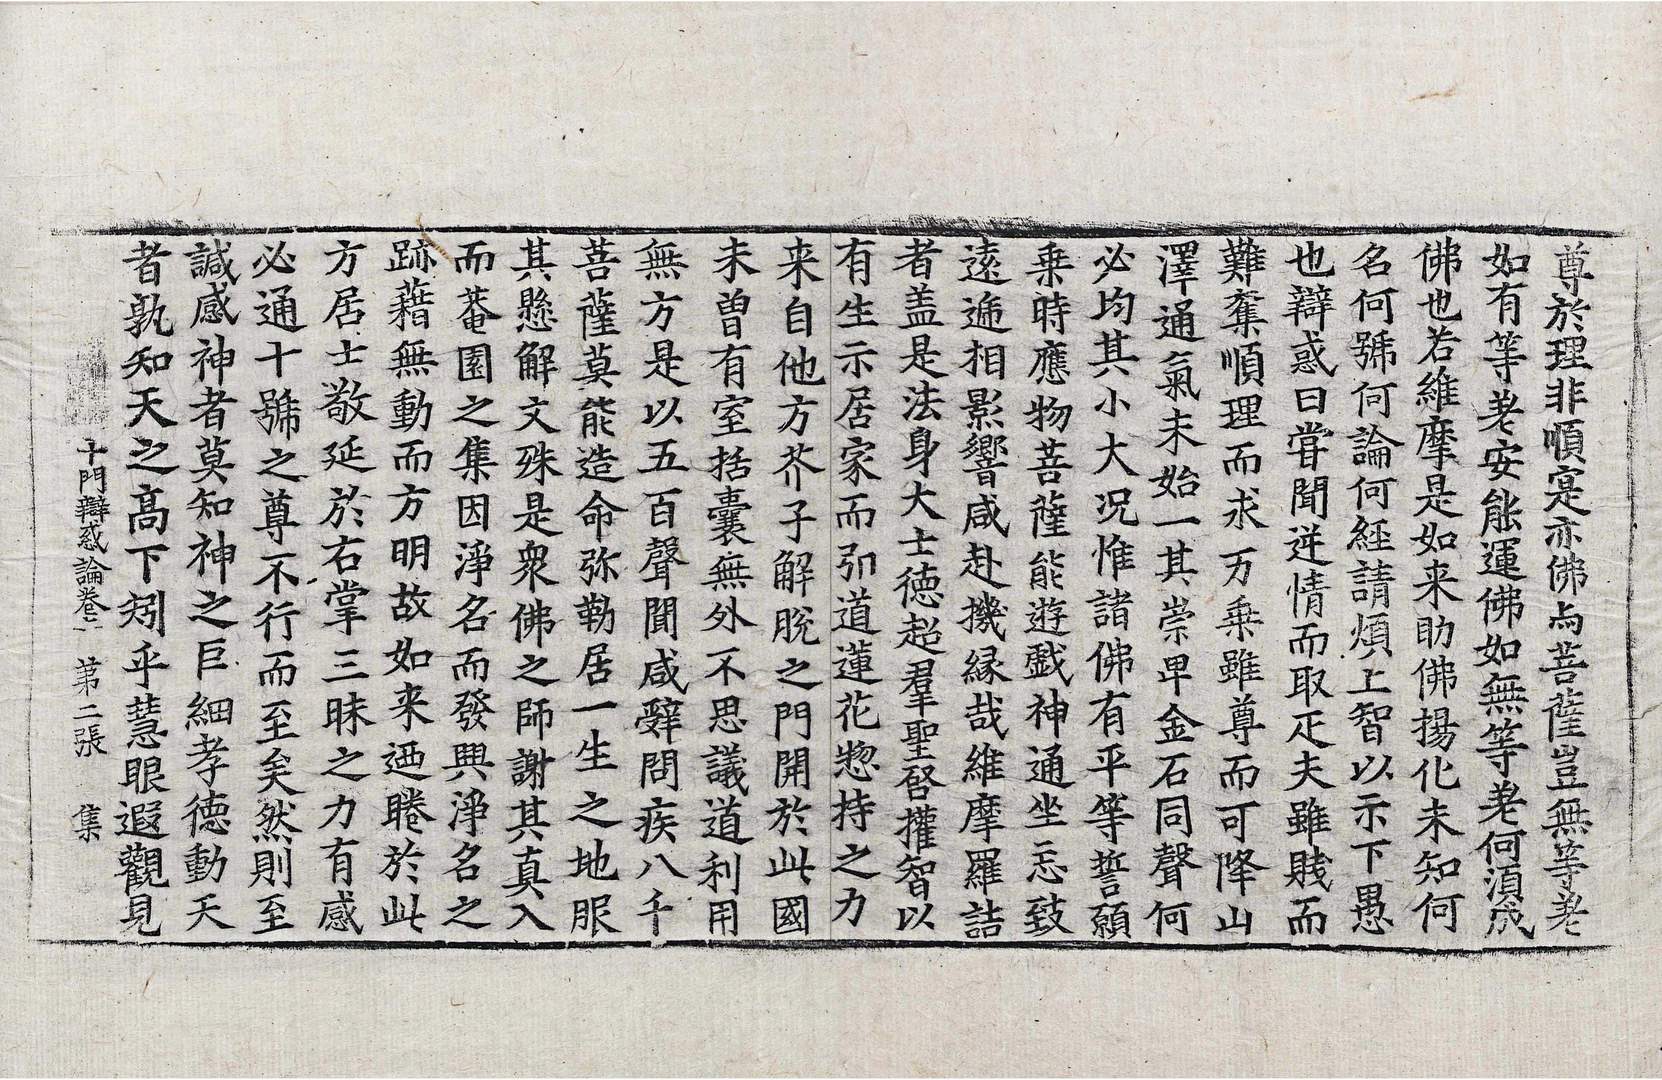 尊於理非順寔亦佛与菩薩豈無等差
如有等差安能運佛如無等差何湏成
佛也若維摩是如来助佛揚化未知何
名何號何論何經請煩上智以示下愚
也辯惑曰甞聞逆情而取疋夫雖賎而
難奪順理而求万乗雖尊而可降山
澤通氣未始一其崇卑金石同聲何
必均其小大况惟諸佛有平等誓願
乗時應物菩薩能遊戲神通坐忘致
遠遞相影響咸赴機縁哉維摩羅詰
者盖是法身大士德超羣聖啓權智以
有生示居家而引道蓮花惣持之力
来自他方芥子解脫之門開於此國
未曽有室括囊無外不思議道利用
無方是以五百聲聞咸辭問疾八千
菩薩莫能造命弥勒居一生之地服
其懸解文殊是衆佛之師謝其真入
而菴園之集因淨名而發興淨名之
跡藉無動而方明故如来迺睠於此
方居士敬延於右掌三昧之力有感
必通十號之尊不行而至矣然則至
諴感神者莫知神之巨細孝德動天
者孰知天之高下矧乎慧眼遐觀見
十門辯惑論卷二 第二張 集